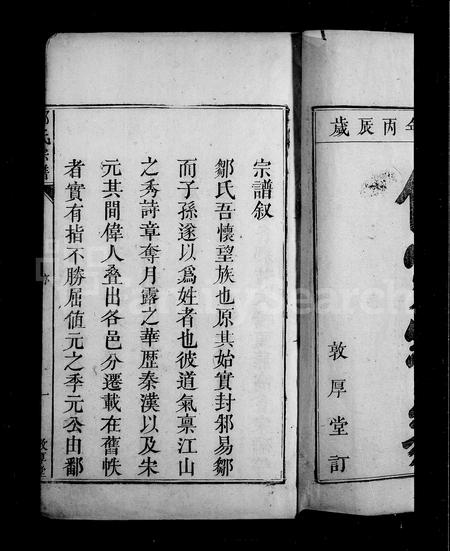 年丙辰歲
敦厚堂訂
宗譜叙
鄒氏吾懷望族也原其始實封邾易鄒
而子孫遂以爲姓者也彼道氣禀江山
之秀詩章奪月露之華歷秦漢以及宋
元其間偉人叠出各邑分遷載在舊帙
者實有指不勝屈值元之季元公由鄱
氏宗譜
序
一
敦厚堂
FamilySearch